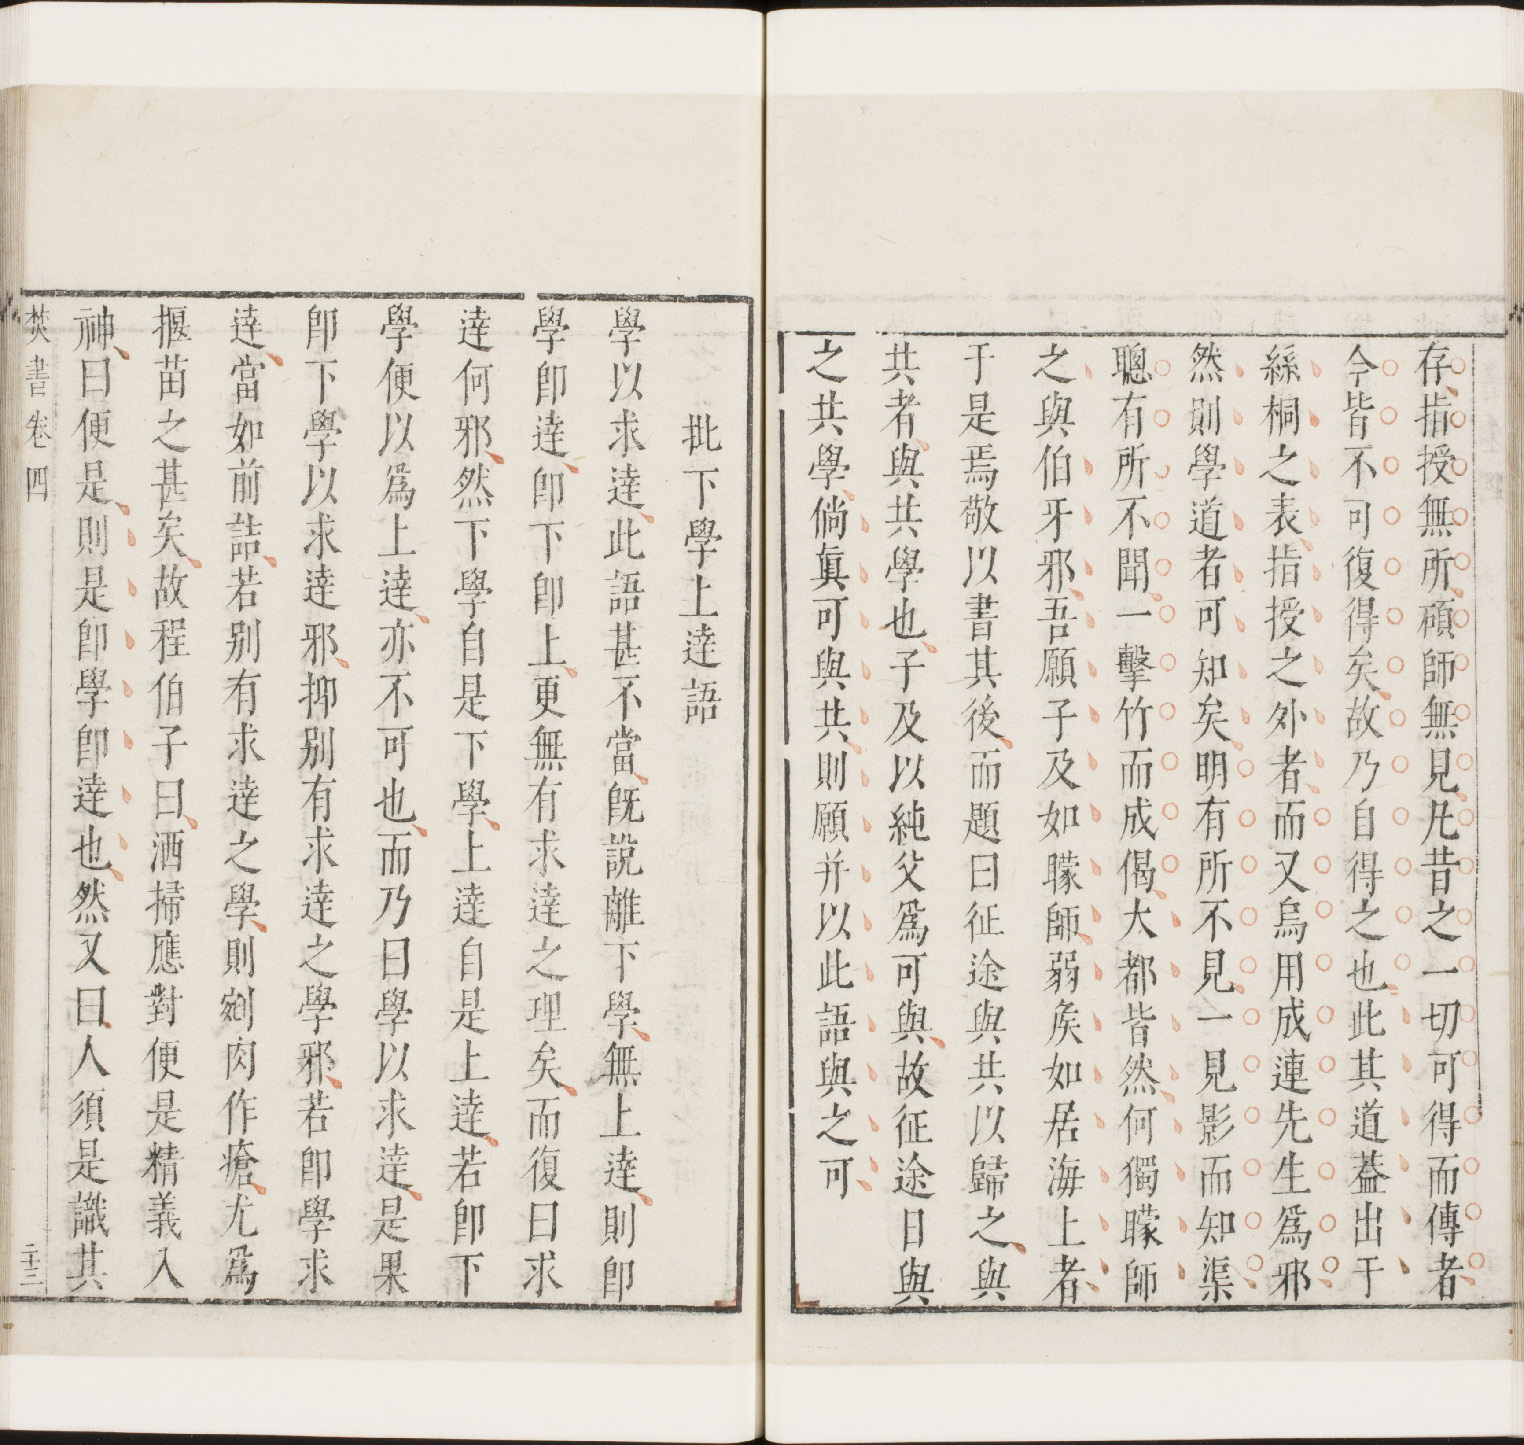 存指授無所碩師無見凡昔之一切可得而傳者
今皆不可復得矣故乃自得之也此其道蓋出于
絲桐之表指授之外者而又烏用成連先生爲邪
然則學道者可知矣明有所不見一見影而知渠
聰有所不聞一擊竹而成偈大都皆然何獨矇師
之與伯牙邪吾願子及如矇師弱矦如居海上者
于是焉敬以書其後而題曰征途與共以歸之與
共者與共學也子及以純父爲可與故征途日與
之共學倘眞可與共則願并以此語與之可
批下學上逹語
學以求逹此語甚不當旣說離下學無上逹則卽
學卽逹卽下卽上更無有求逹之理矣而復曰求
逹何邪然下學自是下學上逹自是上逹若卽下
學便以爲上逹亦不可也而乃曰學以求逹是果
卽下學以求逹邪抑别有求逹之學邪若卽學求
逹當如前詰若别有求逹之學則剜肉作瘡尤爲
揠苗之甚矣故程伯子曰洒掃應對便是精義入
神曰便是則是卽學卽逹也然又曰人須是識其
焚書卷四
二十三